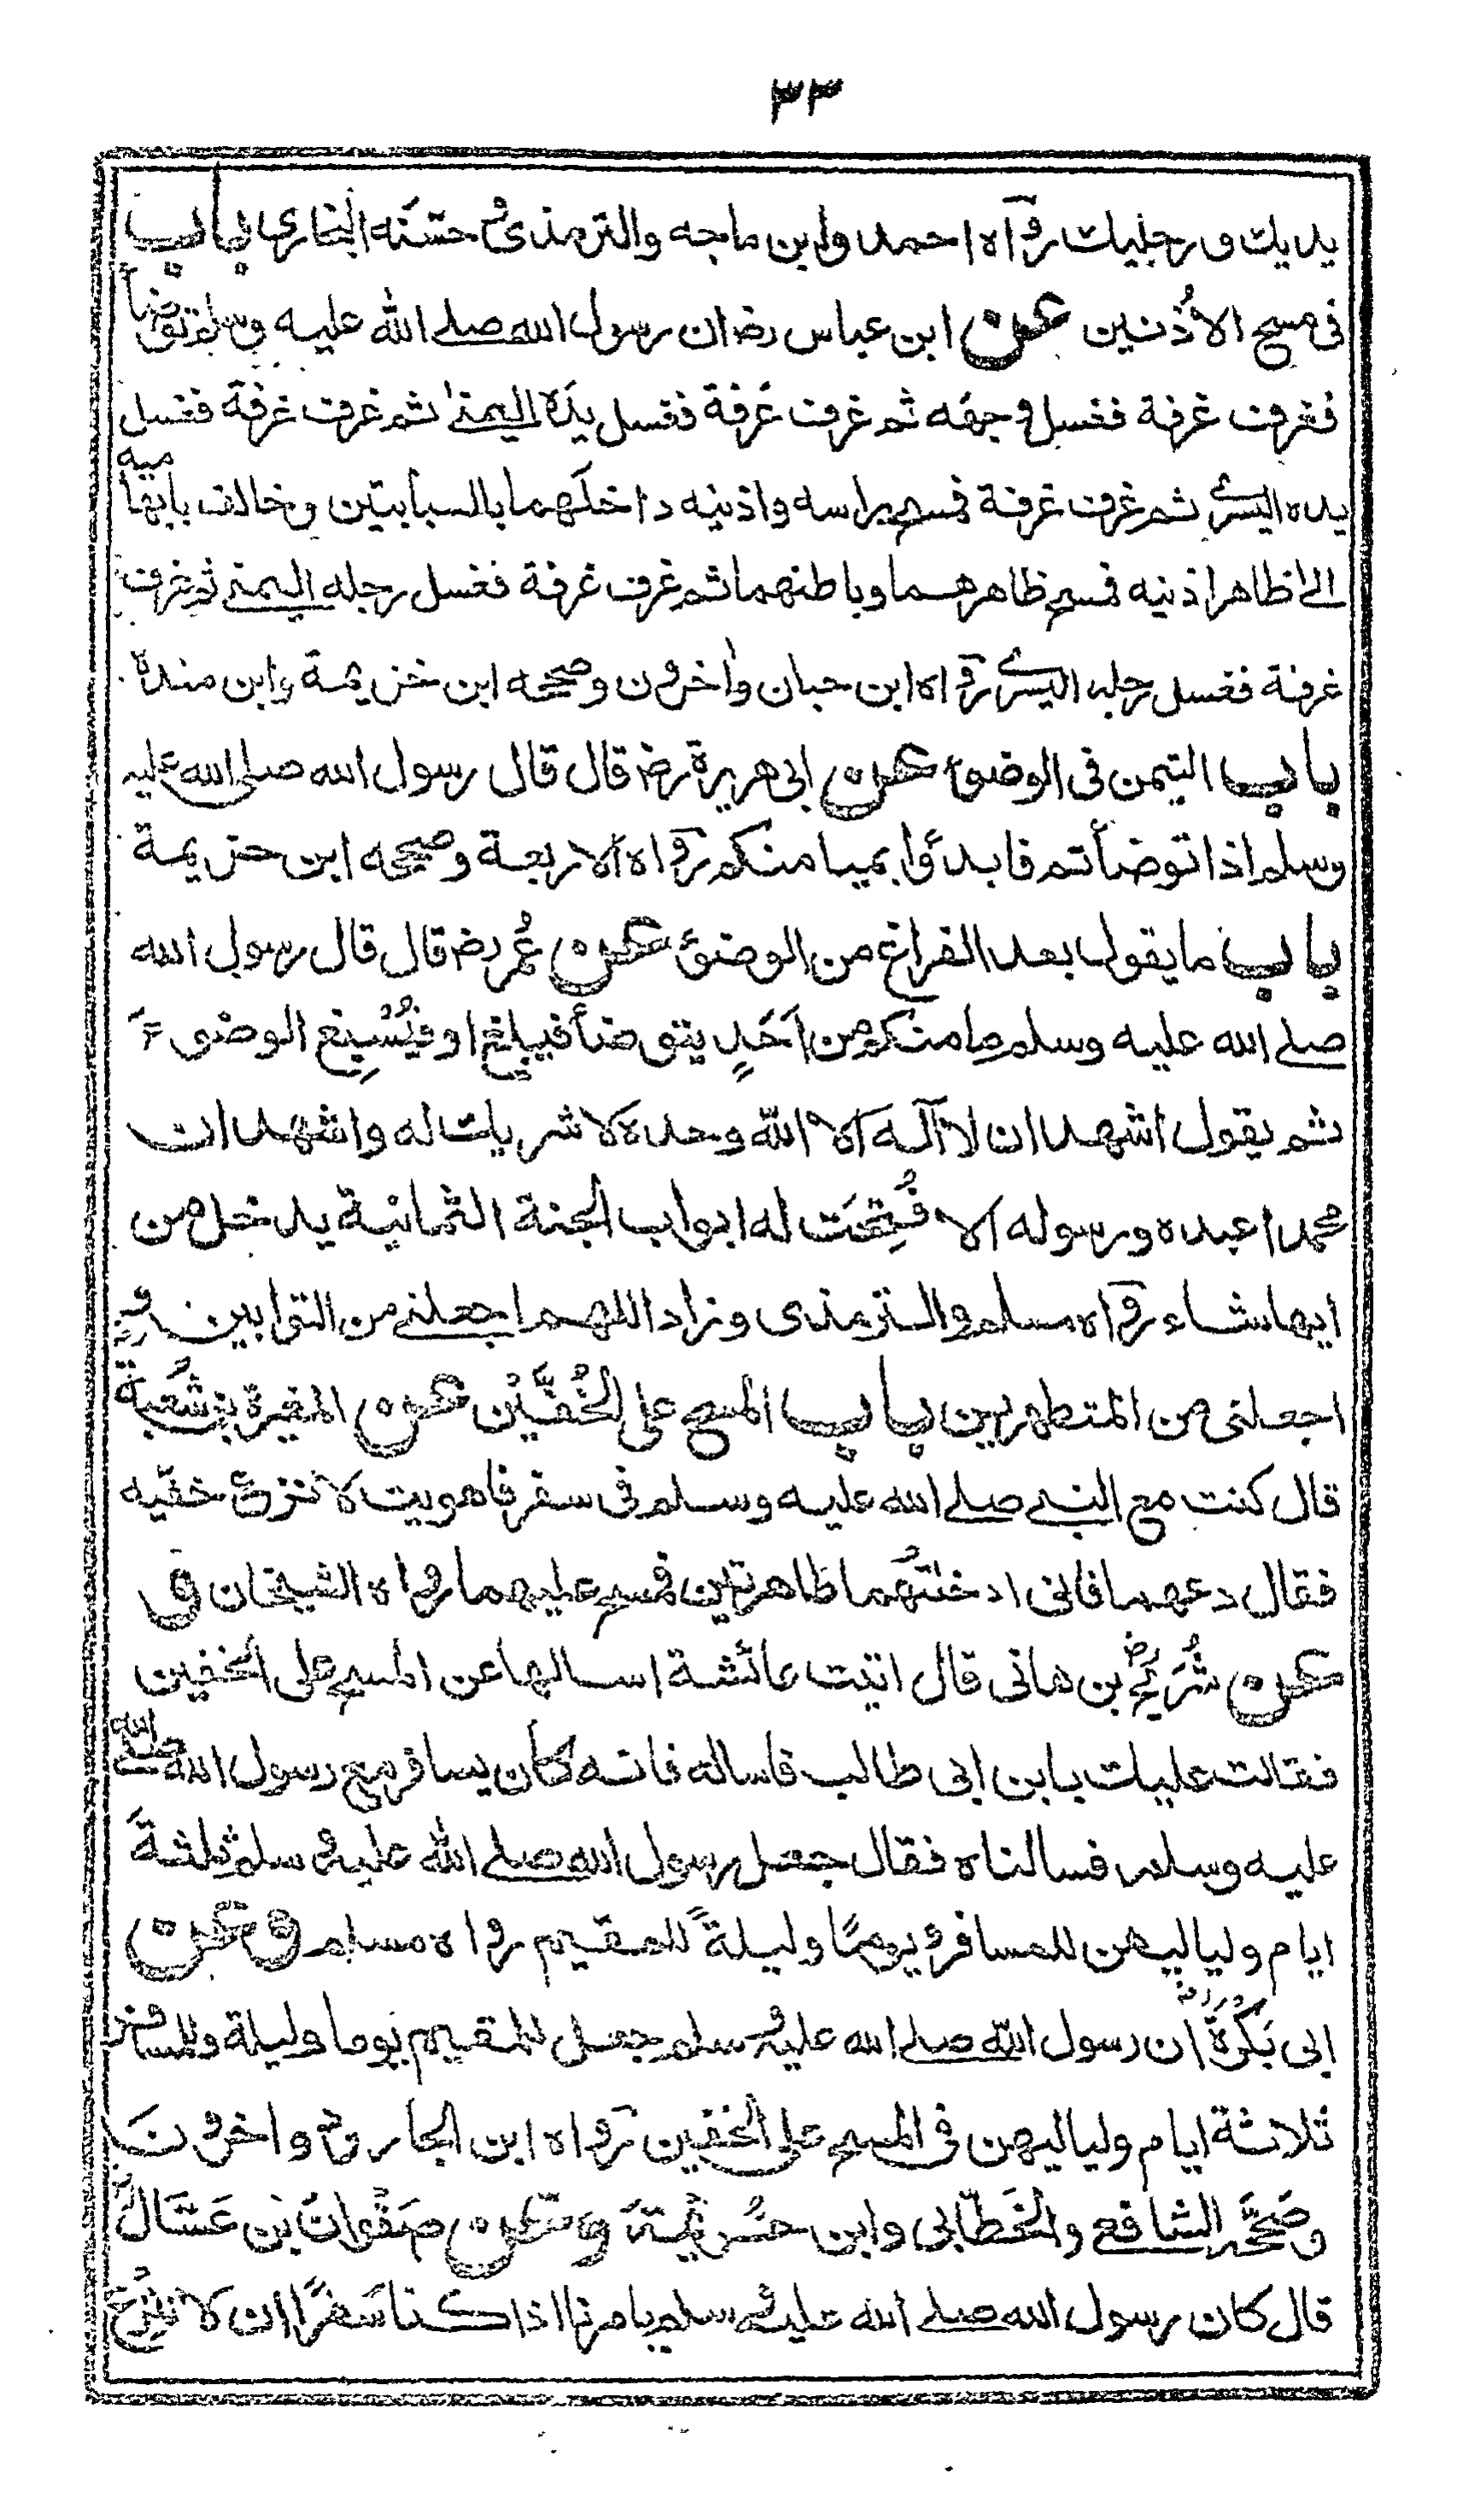 ٣٣
يديك ورجليك رواه احمد وابن ماجه والترمذى وحسَّنه البخارى باب
فى مسح الاُذنين عن ابن عباس رض ان رسول الله صلى الله عليه وسلم توضأ
فغرف غرفة فغسل وجهه ثم غرف غرفة فغسل يده اليمنى ثم غرف غرفة فغسل
يده اليسرى ثم غرف غرفة فمسح براسه واذنيه داخلهما بالسبابتين وخالف بابهاميه
الى ظاهر اذنيه فمسح ظاهرهما وباطنهما ثم غرف غرفة فغسل رجله اليمنى ثم غرف
غرفة فغسل رجله اليسرى رواه ابن حبان واخرون وصححه ابن خزيمة وابن مندة
باب التيمن فى الوضوء عن ابى هريرة رض قال قال رسول الله صلى الله عليه
وسلم اذا توضأتم فابدؤا بميامنكم رواه الاربعة وصححه ابن خزيمة
باب ما يقول بعد الفراغ من الوضوء عن عُمر رض قال قال رسول الله
صلى الله عليه وسلم ما منكم من اَحَدٍ يتوضأ فيبلغ او فيُسْبِغ الوضوءَ
ثم يقول اشهد ان لا آله الا الله وحده لا شريك له واشهد ان
محمدا عبده ورسوله الا فُتِحَت له ابواب الجنة الثمانية يدخل من
ايها شاء رواه مسلم والترمذى وزاد اللهم اجعلنى من التوابين و
اجعلنى من المتطهرين باب المسح على الخُفَّيْن عن المغيرة بن شُعبة
قال كنت مع النبى صلى الله عليه وسلم فى سفر فاهويت لانزع خفّيه
فقال دعهما فانى ادخلتُهما طاهرتين فمسح عليهما رواه الشيخان و
عن شُرَيح رض بن هانى قال اتيت عائشة اسالها عن المسح على الخفين
فقالت عليك بابن ابى طالب فاساله فانه كان يسافر مع رسول الله صلى الله
عليه وسلم فسالناه فقال جعل رسول الله صلى الله عليه وسلم ثلثةَ
ايام ولياليهن للمسافر ويومًا وليلةً للمقيم رواه مسلم وعن
ابى بَكْرَةَ رض ان رسول الله صلى الله عليه وسلم جعل للمقيم يوما وليلة وللمسافر
ثلاثة ايام ولياليهن فى المسح على الخفين رواه ابن الجارود واخرون
وصَحَّحه الشافعى والخَطّابى وابن خُزَيمة وعن صَفْوانَ بن عَسَّال
قال كان رسول الله صلى الله عليه وسلم يامرنا اذا كنا سَفرًا ان لا ننزع